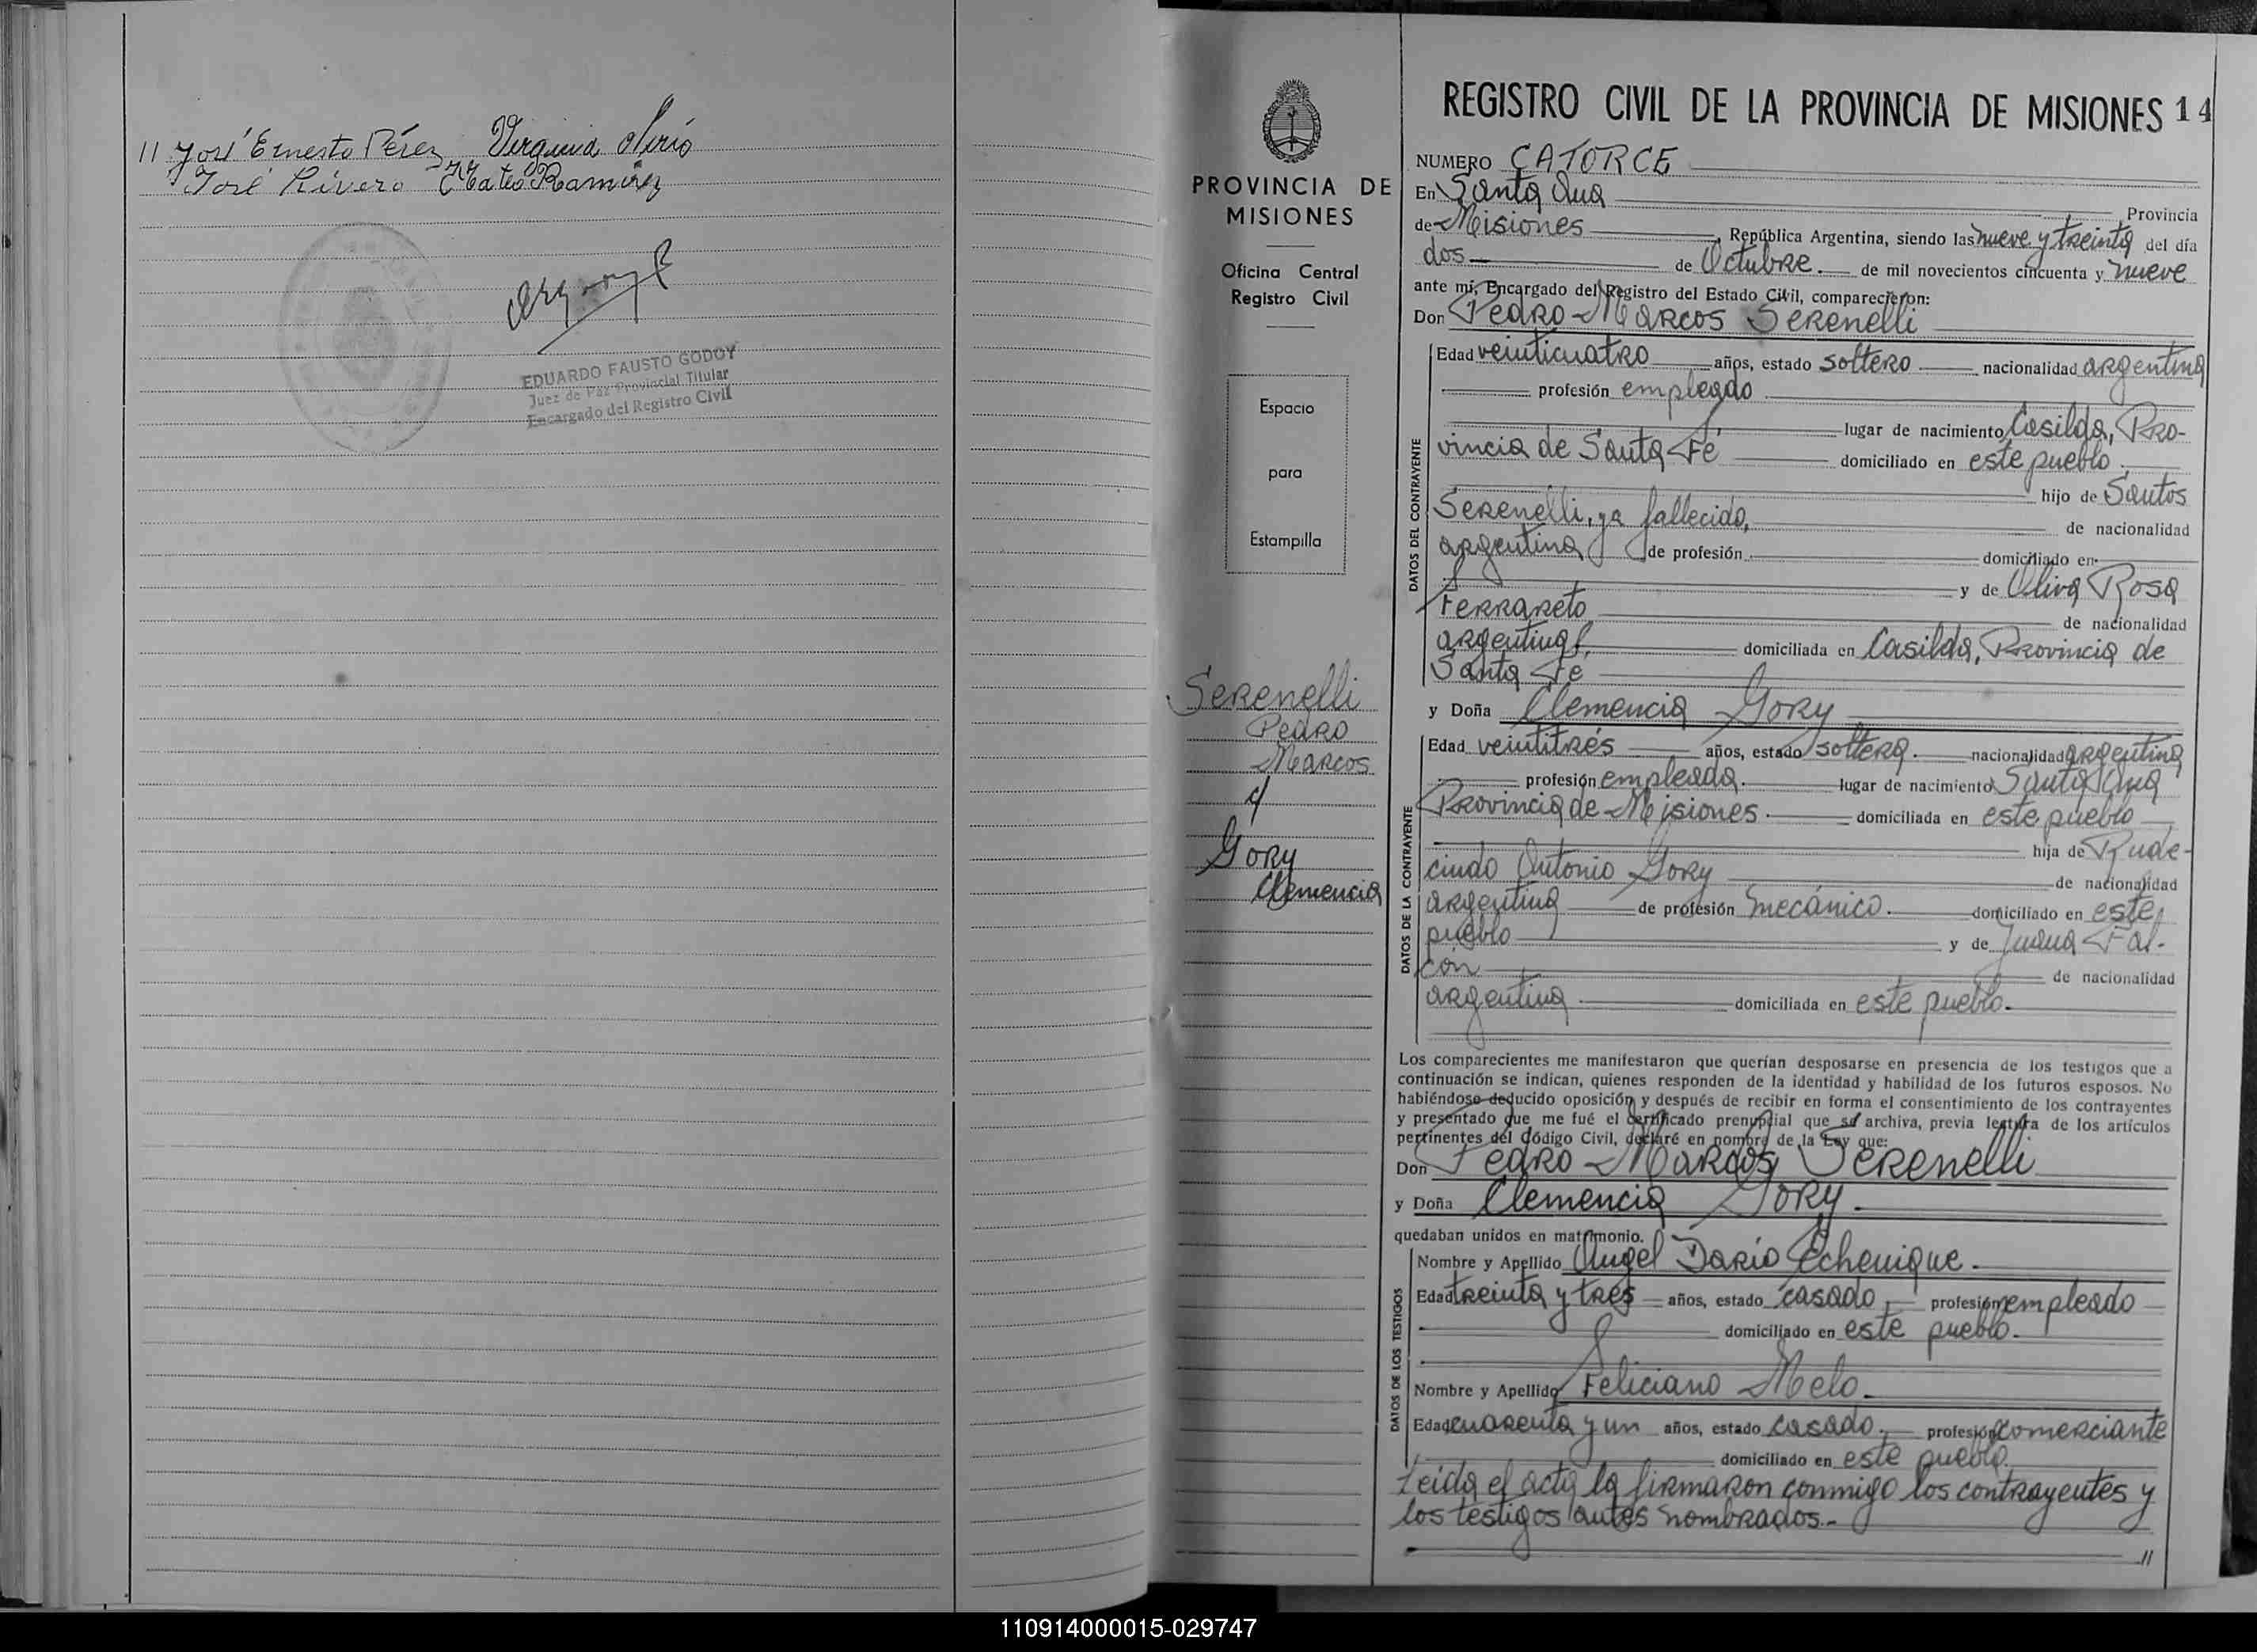 11 José Ernesto Pérez Virginia
José Rivero Mateo Ramirez
EDUARDO FAUSTO GODOY
Juez de Paz Provincial Titular
Encargado del Registro Civil
PROVINCIA DE
MISIONES
Oficina Central
Registro Civil
Espacio
para
Estampilla
Serenelli
Pedro
Marcos
y
Gory
Clemencia
REGISTRO CIVIL DE LA PROVINCIA DE MISIONES 14
NUMERO CATORCE
En Santa Ana Provincia
de Misiones, República Argentina, siendo las nueve y treinta del día
dos de Octubre. de mil novecientos cincuenta y nueve
ante mí, Encargado del Registro del Estado Civil, comparecieron:
Don Pedro Marcos Serenelli
DATOS DEL CONTRAYENTE
Edad veinticuatro años, estado soltero nacionalidad argentina
profesión empleado
lugar de nacimiento Casilda, Pro-
vincia de Santa Fé domiciliado en este pueblo
hijo de Santos
Serenelli, ya fallecido, de nacionalidad
argentina de profesión domiciliado en
y de Oliva Rosa
Ferrareto de nacionalidad
argentina, domiciliada en Casilda, Provincia de
Santa Fe
y Doña Clemencia Gory
DATOS DE LA CONTRAYENTE
Edad veintitrés años, estado soltera. nacionalidad argentina
profesión empleada. lugar de nacimiento Santa Ana
Provincia de Misiones domiciliada en este pueblo
hija de Rude-
cindo Antonio Gory de nacionalidad
argentina de profesión mecánico. domiciliado en este
pueblo y de Juana Fal-
cón de nacionalidad
argentina domiciliada en este pueblo.
Los comparecientes me manifestaron que querían desposarse en presencia de los testigos que a
continuación se indican, quienes responden de la identidad y habilidad de los futuros esposos. No
habiéndose deducido oposición y después de recibir en forma el consentimiento de los contrayentes
y presentado que me fué el certificado prenupcial que se archiva, previa lectura de los artículos
pertinentes del Código Civil, declaré en nombre de la Ley que:
Don Pedro Marcos Serenelli
y Doña Clemencia Gory.
quedaban unidos en matrimonio.
DATOS DE LOS TESTIGOS
Nombre y Apellido Angel Darío Echenique.
Edad treinta y tres años, estado casado, profesión empleado
domiciliado en este pueblo.
Nombre y Apellido Feliciano Melo.
Edad cuarenta y un años, estado casado, profesión comerciante
domiciliado en este pueblo.
Leída el acta la firmaron conmigo los contrayentes y
los testigos antes nombrados.-
//
110914000015-029747